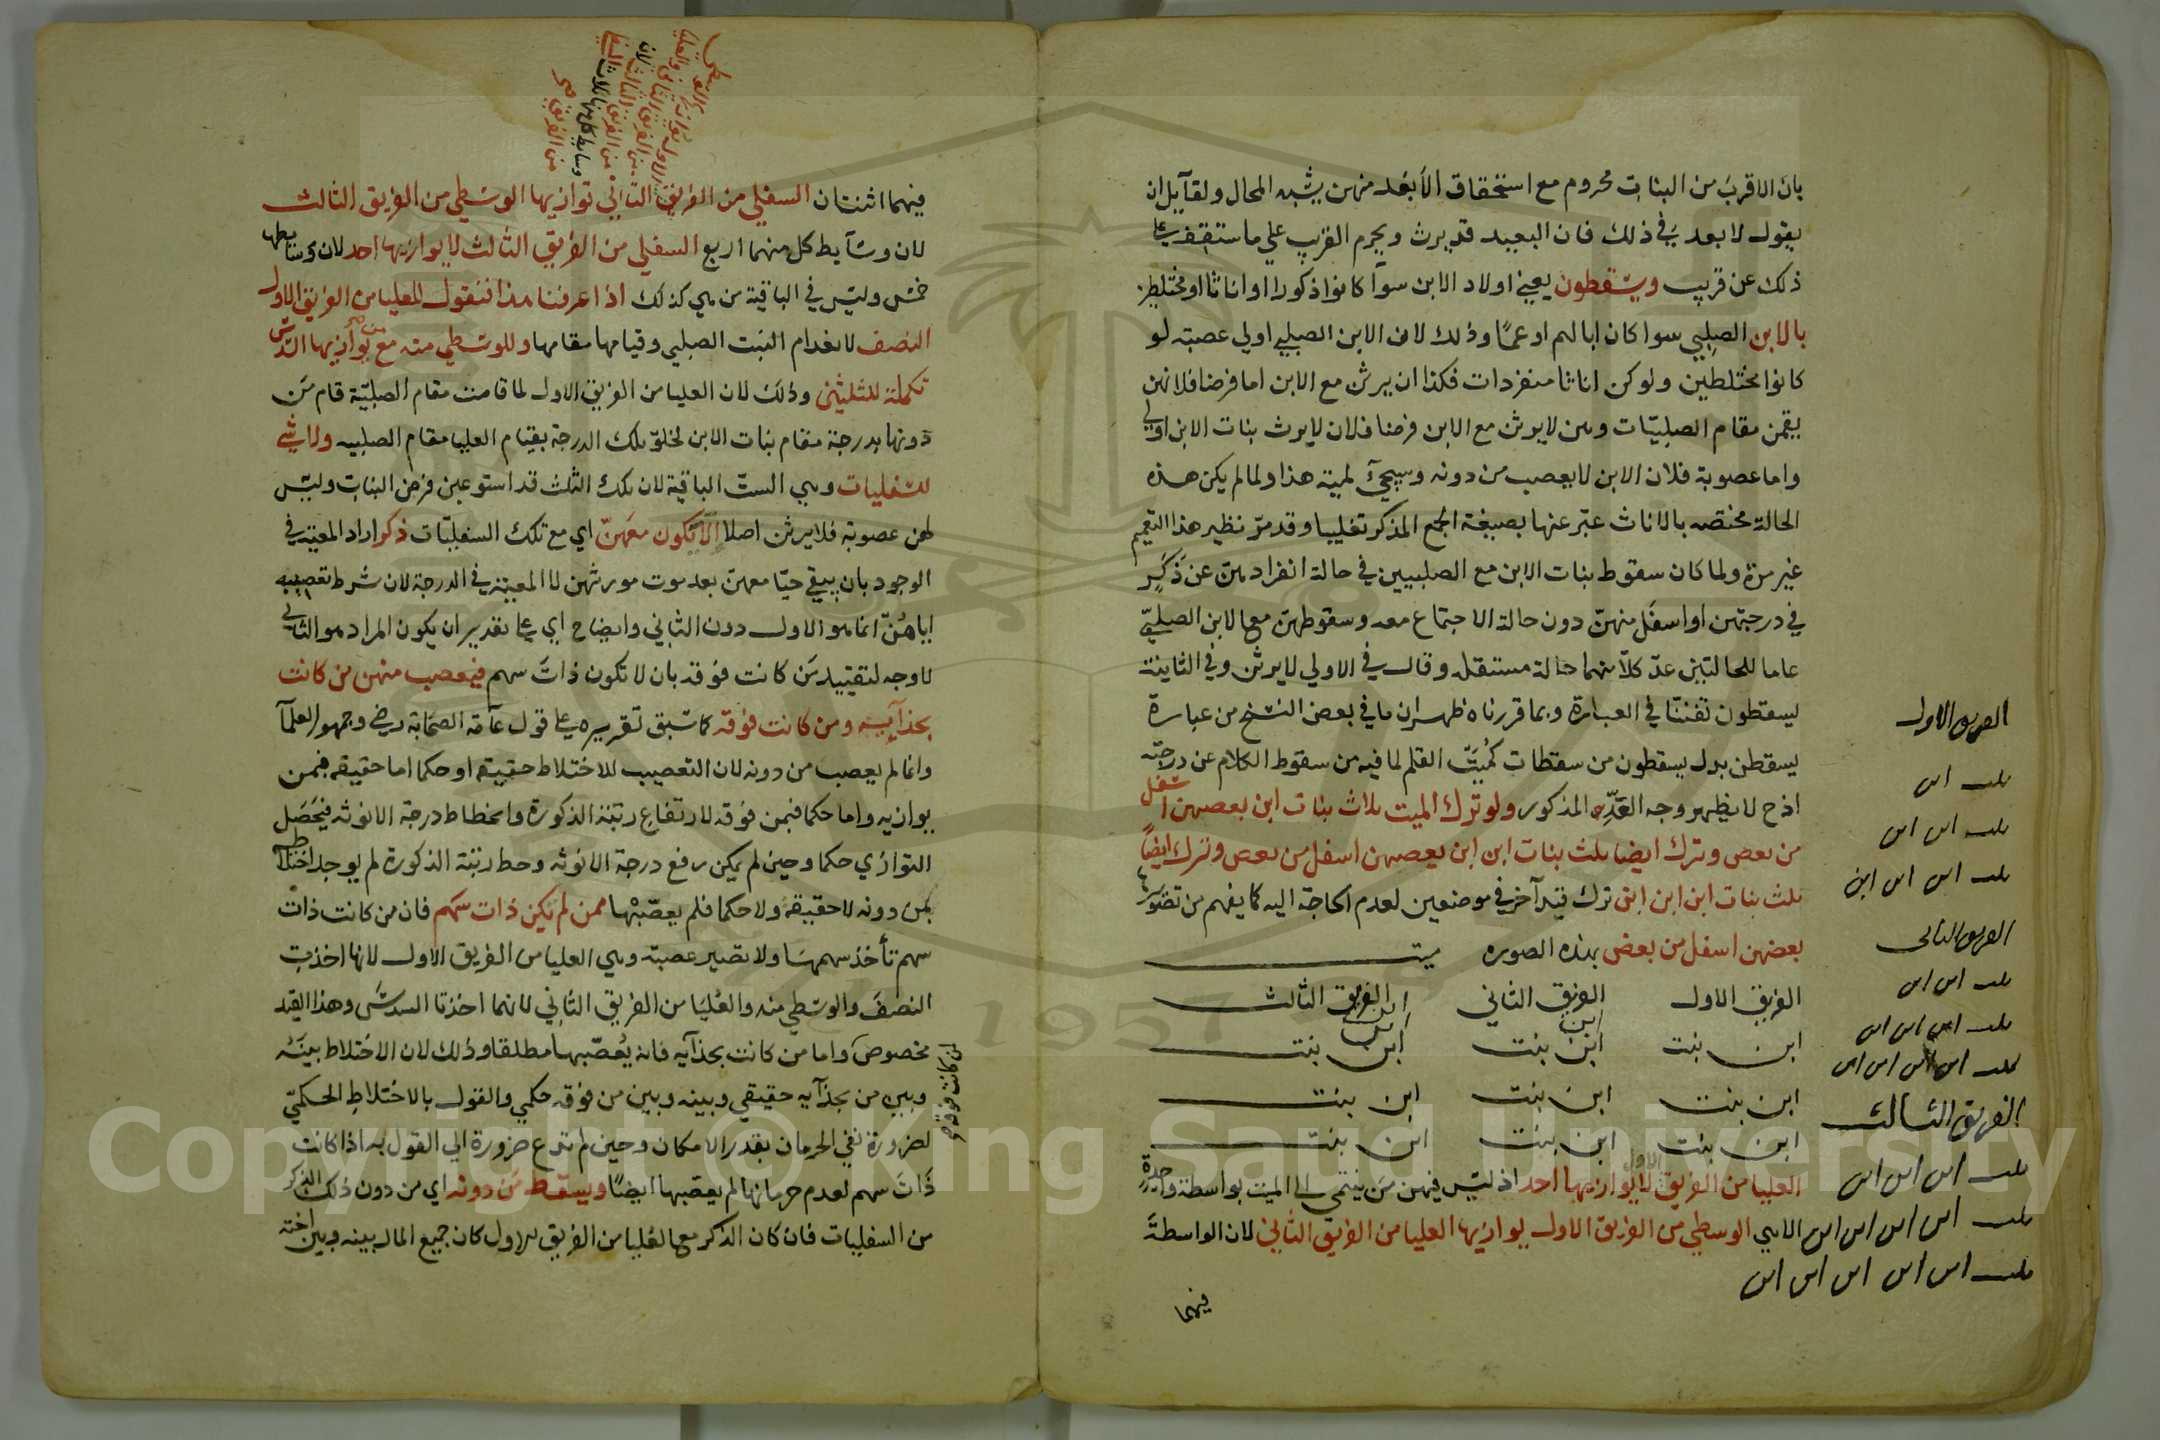 بان الاقرب من البنات محروم مع استحقاق الأبعد منهن يشبه المحال ولقآيل ان
يقول لا بعد في ذلك فان البعيد قد يرث ويحرم القريب علي ما ستقف علي
ذلك عن قريب ويسقطون يعني اولاد الابن سوآ كانوا ذكورا او اناثا او مختلطين
بالابن الصلبي سوا كان ابا لهم او عما وذلك لان الابن الصلبي اولي عصبته لو
كانوا مختلطين ولو كن اناثا منفردات فكذا ان يرثن مع الابن اما فرضا فلانهن
يقمن مقام الصلبيّات وهن لا يرثن مع الابن فرضا فلان لا يرث بنات الابن اولي
واما عصوبة فلان الابن لا يعصب من دونه وسيجئ لميته هذا ولما لم يكن هذه
الحالة مختصه بالاناث عبّر عنها بصيغة الجمع المذكر تغليبا وقد مرّ نظير هذا التعميم
غير مرة ولما كان سقوط بنات الابن مع الصلبيين في حالة انفرادهنّ عن ذَكَرٍ
في درجتهن او اسفل منهنّ دون حالة الاجتماع معه وسقوطهنّ مع الابن الصلبيّ
عاما للحالتين عدّ كلاّ منهما حالة مستقله وقال في الاولي لا يرثن وفي الثانية
يسقطون تفننّا في العبارة وبما قررناه ظهر ان ما في بعض النسخ من عبارة
يسقطن بدل يسقطون من سقطات كُميت القلم لما فيه من سقوط الكلام عن درجته
اذ ح لا يظهر وجه العدّه المذكور ولو ترك الميت ثلاث بنات ابن بعضهن اسفل
من بعض وترك ايضا ثلث بنات ابن ابن بعضهن اسفل من بعض وترك ايضاً
ثلث بنات ابن ابن ابن ترك قيد آخر في موضعين لعدم الحاجة اليه كما يفهم من تصويره
بعضهن اسفل من بعض بهذه الصوره ميت
الفريق الاول الفريق الثاني الفريق الثالث
ابن ابن
ابن
ابن بنت ابن بنت ابن بنت
ابن بنت ابن بنت ابن بنت
ابن بنت ابن بنت ابن بنت
العليا من الفريق الاول لا يوازيها احد اذ ليس فيهن من ينتمي الي الميت بواسطة واحدة
الا هي الوسطي من الفريق الاول يوازيها العليا من الفريق الثاني لان الواسطة
فيهما
الفريق الاول
بنت ابن
بنت ابن ابن
بنت ابن ابن ابن
الفريق الثاني
بنت ابن ابن
بنت ابن ابن ابن
بنت ابن ابن ابن ابن
الفريق الثالث
بنت ابن ابن ابن
بنت ابن ابن ابن ابن
بنت ابن ابن ابن ابن ابن
من الفريق الثالث لان
من الفريق
وسايط كل منها ثلاث
من الفريق صح
فيهما اثنتان السفلي من الفريق الثاني توازيها الوسطي من الفريق الثالث
لان وسآيط كل منهما اربع السفلي من الفريق الثالث لا يوازيها احد لان وسايطها
خمس وليس في الباقية من هي كذلك اذا عرفنا هذا فنقول للعليا من الفريق الاول
النصف لانعدام البنت الصلبي وقيامها مقامها وللوسطي منه مع من يوازيها السدس
تكملة للثلثين وذلك لان العليا من الفريق الاول لما قامت مقام الصلبيّة قام من
دونها بدرجة مقام بنات الابن لخلوّ تلك الدرجة بقيام العليا مقام الصلبيه ولا شي
للسفليات وهي الستّ الباقية لان تلك الثلث قد استوعبن فرض البنات وليس
لهن عصوبة فلا يرثن اصلا الا ان يكون معهنّ اي مع تلك السفليّات ذكر اراد المعيّة في
الوجود بان يبقي حيّا معهن بعد موت مورثهن لا المعيّة في الدرجة لان شرط تعصيبه
اياهُنّ انما هو الاول دون الثاني وايضاح اي علي تقدير ان يكون المراد هو الثاني
لا وجه لتقييد من كانت فوقه بان لا تكون ذات سهم فيعصب منهن من كانت
بحذآيه ومن كانت فوقه كما سبق تقريره علي قول عآمة الصحابة رضي وجمهور العلمآ
وانما لم يعصب من دونه لان التعصيب للاختلاط حقيقه او حكما اما حقيقه فمن
يوازيه واما حكما فمن فوقه لارتفاع رتبة الذكورة وانحطاط درجة الانوثه فيحصل
التوازي حكما وحين لم يكن رفع درجة الانوثه وحط رتبة الذكورة لم يوجد اختلاط
بمن دونه لا حقيقه ولا حكما فلم يعصّبْها ممن لم تكن ذات سهم فان من كانت ذات
سهم تأخذ سهمها ولا تصير عصبة وهي العليا من الفريق الاول لانها اخذت
النصف والوسطي منه والعليا من الفريق الثاني لانهما اخذتا السدس وهذا القيد
مخصوص واما من كانت بحذآيه فانه يُعصّبها مطلقا وذلك لان الاختلاط بينه
وبين من بحذآيه حقيقي وبينه وبين من فوقه حكمي والقول بالاختلاط الحكميّ
لضرورة نفي الحرمان بقدر الامكان وحين لم تدع ضرورة الي القول به اذا كانت
ذَات سهم لعدم حرمانها لم يعصبها ايضًا ويسقط من دونه اي من دون ذلك الذكر
من السفليات فان كان الذكر مع العليا من الفريق الاول كان جميع المال بينه وبين اخته
بمن كانت فوقه صح
1957
Copyright © King Saud University